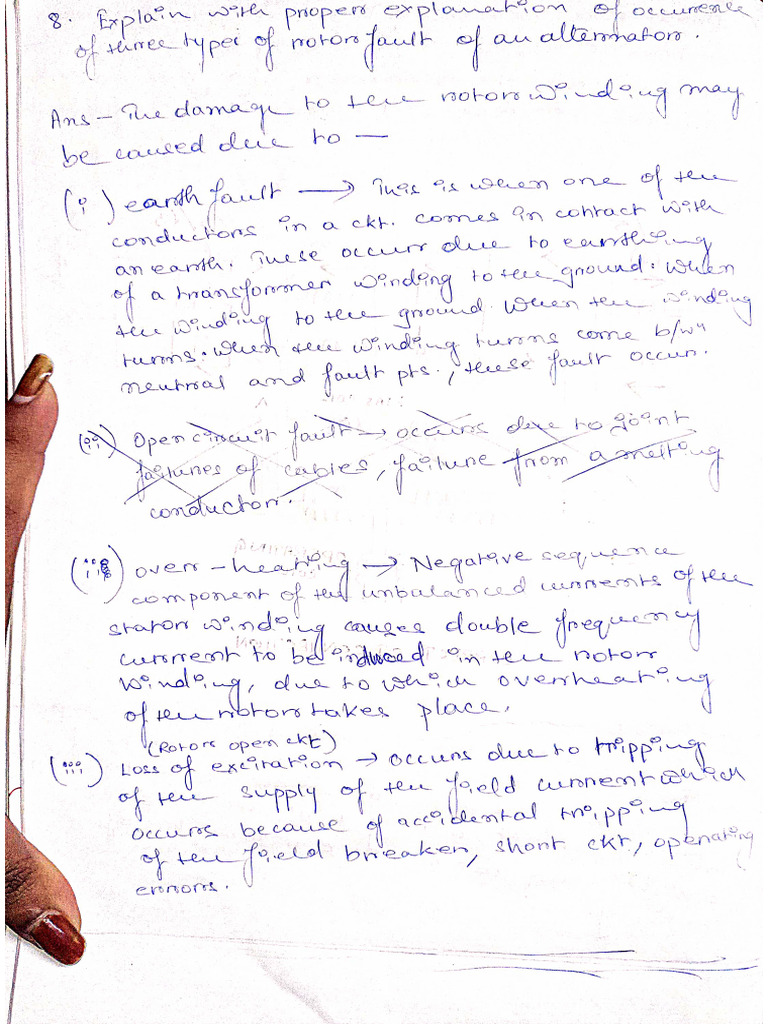 8. Explain with proper explanation of occurrence
of three types of rotor fault of an alternator.
Ans – The damage to the rotor winding may
be caused due to —
(i) earth fault → This is when one of the
conductors in a ckt. comes in contact with
an earth. These occurr due to earthing
of a transformer winding to the ground. When
the winding to the ground. When the winding
turns. When the winding turns come b/wn
neutral and fault pts., these fault occur.
(ii) Open circuit fault → occurs due to joint
failures of cables, failure from a melting
conductor.
(ii) over-heating → Negative sequence
component of the unbalanced currents of the
stator winding causes double frequency
current to be induced in the rotor
winding, due to which overheating
of the rotor takes place.
(Rotor open ckt)
(iii) Loss of excitation → occurs due to tripping
of the supply of the field current which
occurs because of accidental tripping
of the field breaker, short ckt, operating
errors.